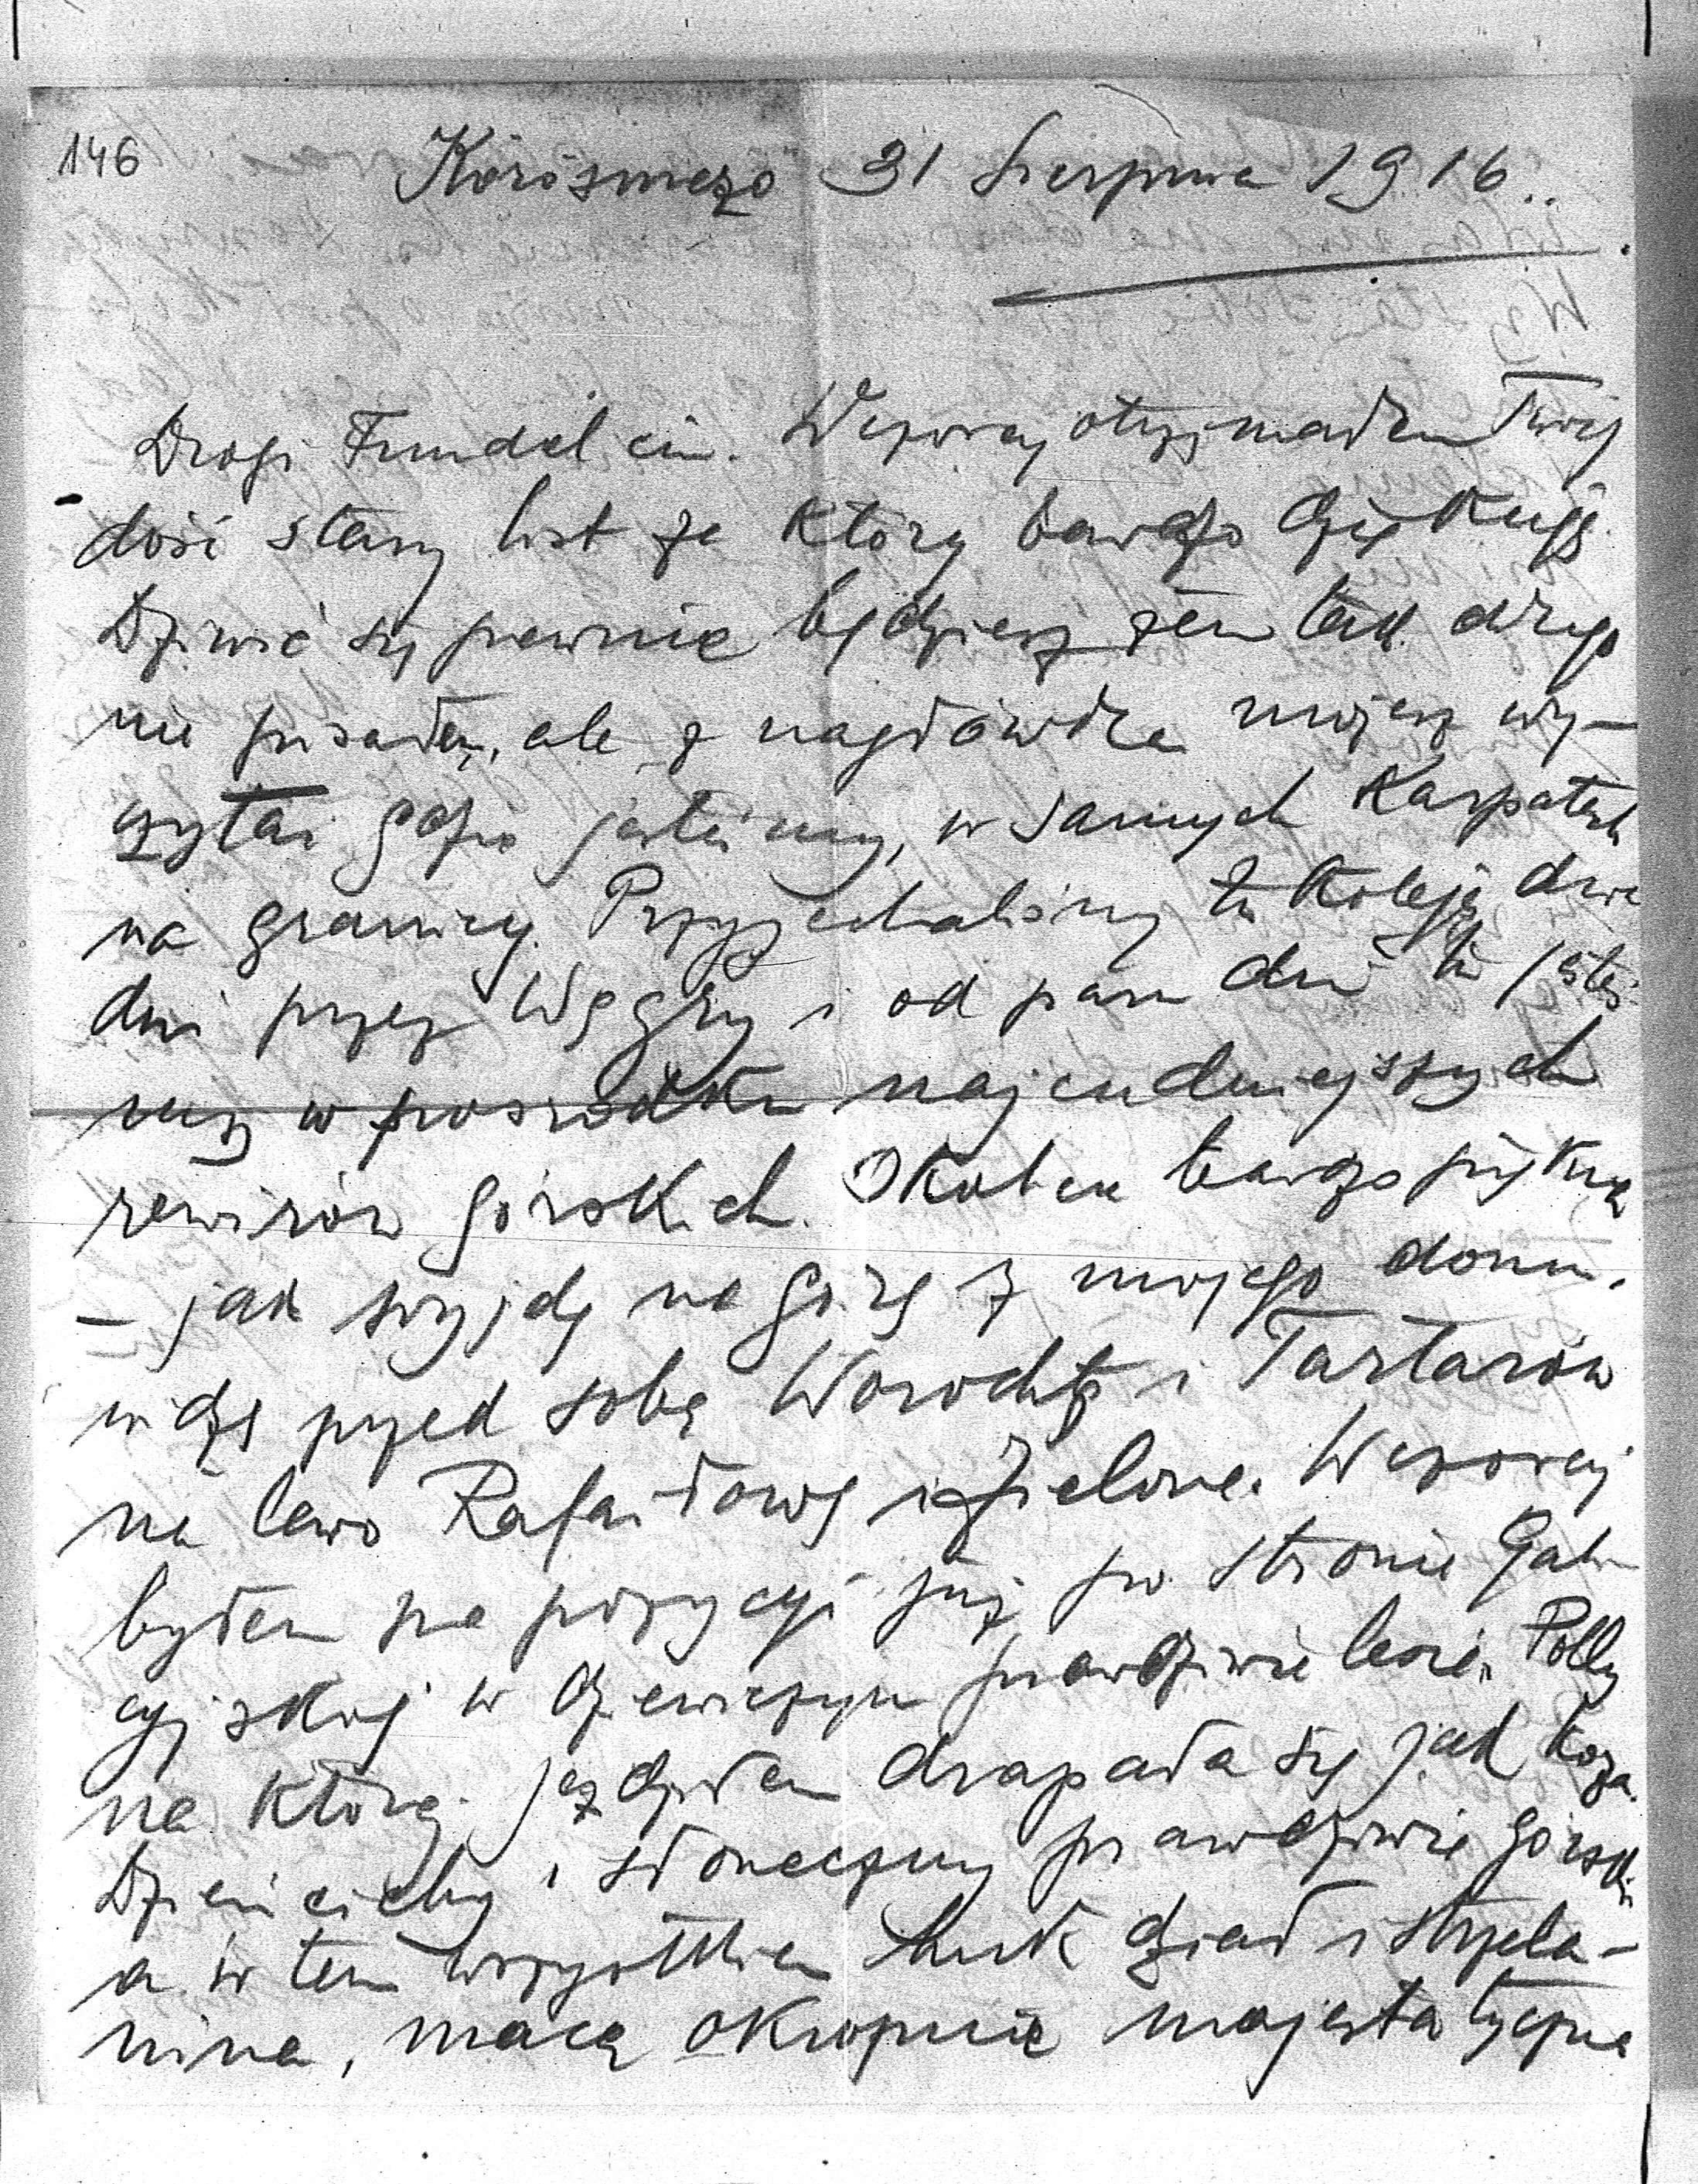 146
Körösmezö 31 Sierpnia 1916..
Drogi Fundelciu. Wczoraj otrzymałem Twój
dość stary list za który bardzo dziękuję.
Dziwić się pewnie będziesz żem tak długo
nie pisałem, ale z nagłówka możesz wy-
czytać gdzie jesteśmy, w samych Karpatach
na granicy. Przyjechaliśmy tu koleją dwa
dni przez Węgry i od paru dni tu jesteś-
my w pośrodku najcudniejszych
rewirów górskich. Okolica bardzo piękna
– jak wyjdę na górę z mojego domu.
widzę przed sobą Worochtę i Tartarów
na lewo Rafaiłowę i Zielone. Wczoraj
byłem na pozycyi już po stronie Gali-
cyjskiej w dziewiczym prawdziwie lesie. Polly
na której jeździłem drapała się jak koza.
Dzień cichy i słoneczny prawdziwie górski
a w tem wszystkiem huk dział i strzela-
nina, mają okropnie majestatyczne